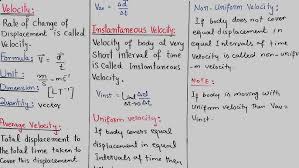 Velocity:
Rate of Change of
Displacement is called
Velocity.
Formula: V = d/t
Unit: m/s = ms⁻¹
Dimension: [LT⁻¹]
Quantity: vector
Average Velocity:
Total displacement to
the total time taken to
Cover this displacement.
Vav = Δd/Δt
Instantaneous Velocity:
Velocity of body at very
Short interval of time
is called Instantaneous
Velocity.
Vinst = Δd/Δt
Uniform velocity:
If body covers equal
displacement in equal
Intervals of time then
Non-Uniform Velocity:
If body does not cover
equal displacement in
equal Intervals of time
Velocity is called non-unifor-
m velocity.
NOTE:
If body is moving with
Uniform velocity Than Vav =
Vinst